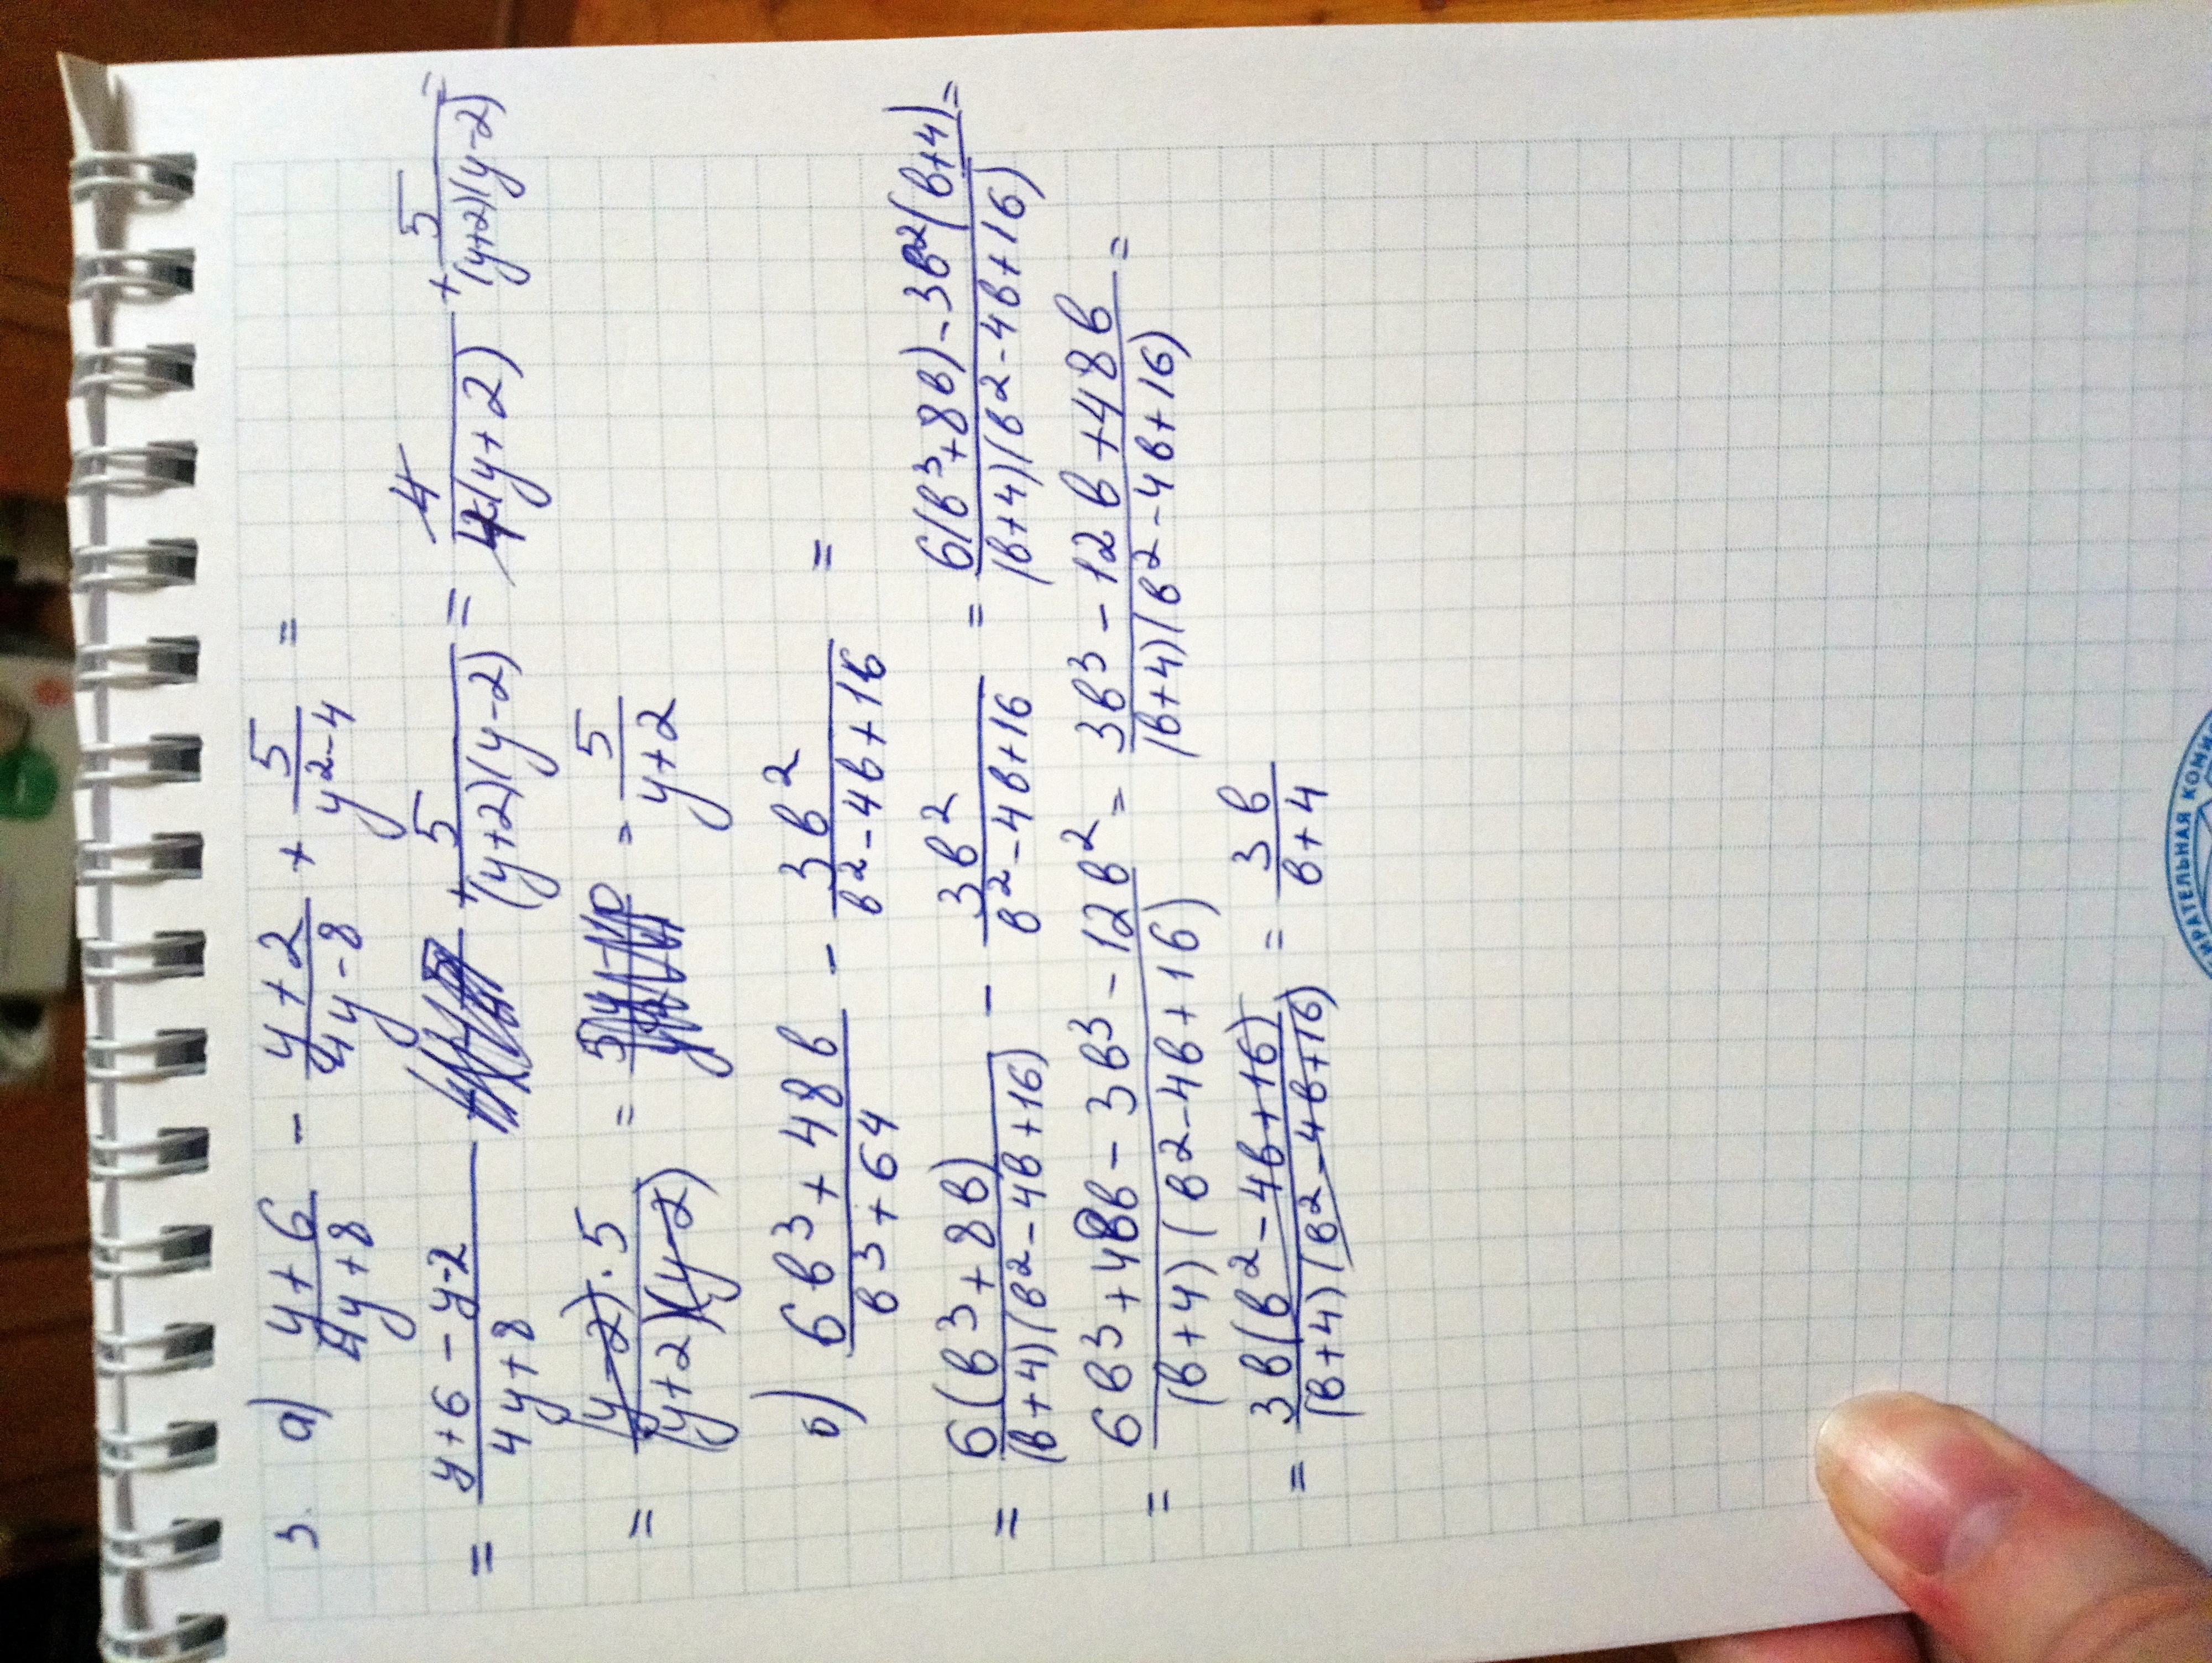 3. а) (y+6)/(4y+8) - (y+2)/(4y-8) + 5/(y²-4) =
= (y+6-y-2)/(4y+8) + 5/((y+2)(y-2)) = 4/(4(y+2)) + 5/((y+2)(y-2)) =
= ((y-2)·5)/((y+2)(y-2)) = = 5/(y+2)
б) (6в³+48в)/(в³+64) - 3в²/(в²-4в+16) =
= 6(в³+8в)/((в+4)(в²-4в+16)) - 3в²/(в²-4в+16) = (6(в³+8в)-3в²(в+4))/((в+4)(в²-4в+16)) =
= (6в³+48в-3в3-12в²)/((в+4)(в2-4в+16)) = (3в3-12в+48в)/((в+4)(в2-4в+16)) =
= 3в(в²-4в+16)/((в+4)(в2-4в+16)) = 3в/(в+4)
ИРАТЕЛЬНАЯ КОМИ